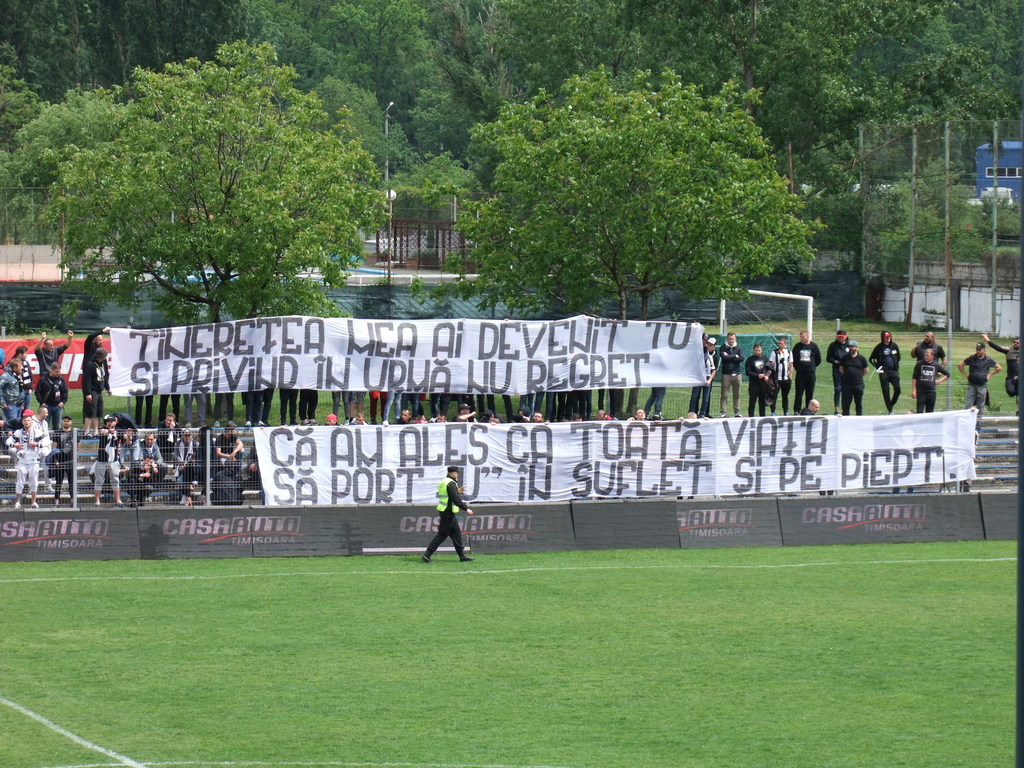 TINEREȚEA MEA AI DEVENIT TU
SI PRIVIND ÎN URMĂ NU REGRET
CĂ AM ALES CA TOATĂ VIAȚA
SĂ PORT "U" ÎN SUFLET SI PE PIEPT
CASA AUTO TIMISOARA
CASA AUTO TIMISOARA
CASA AUTO TIMISOARA
CASA AUTO TIMISOARA
CASA AUTO TIMISOARA